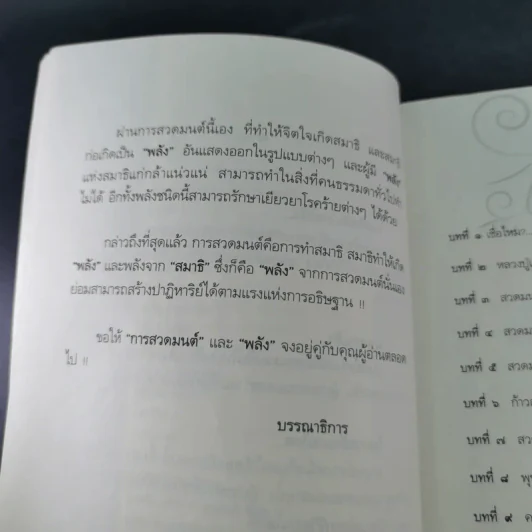 ผ่านการสวดมนต์นี้เอง ที่ทำให้จิตใจเกิดสมาธิ และสมาธิ
ก่อเกิดเป็น “พลัง” อันแสดงออกในรูปแบบต่างๆ และผู้มี “พลัง”
แห่งสมาธิแก่กล้าแน่วแน่ สามารถทำในสิ่งที่คนธรรมดาทั่วไปทำ
ไม่ได้ อีกทั้งพลังชนิดนี้สามารถรักษาเยียวยาโรคร้ายต่างๆ ได้ด้วย
กล่าวถึงที่สุดแล้ว การสวดมนต์คือการทำสมาธิ สมาธิทำให้เกิด
“พลัง” และพลังจาก “สมาธิ” ซึ่งก็คือ “พลัง” จากการสวดมนต์นั่นเอง
ย่อมสามารถสร้างปาฏิหาริย์ได้ตามแรงแห่งการอธิษฐาน !!
ขอให้ “การสวดมนต์” และ “พลัง” จงอยู่คู่กับคุณผู้อ่านตลอด
ไป !!
บรรณาธิการ
บทที่ ๑ เชื่อไหม
บทที่ ๒ หลวงปู่
บทที่ ๓ สวดมน
บทที่ ๔ สวดม
บทที่ ๕ สวดม
บทที่ ๖ ก้าว
บทที่ ๗ สว
บทที่ ๘ พุ
บทที่ ๙ ค